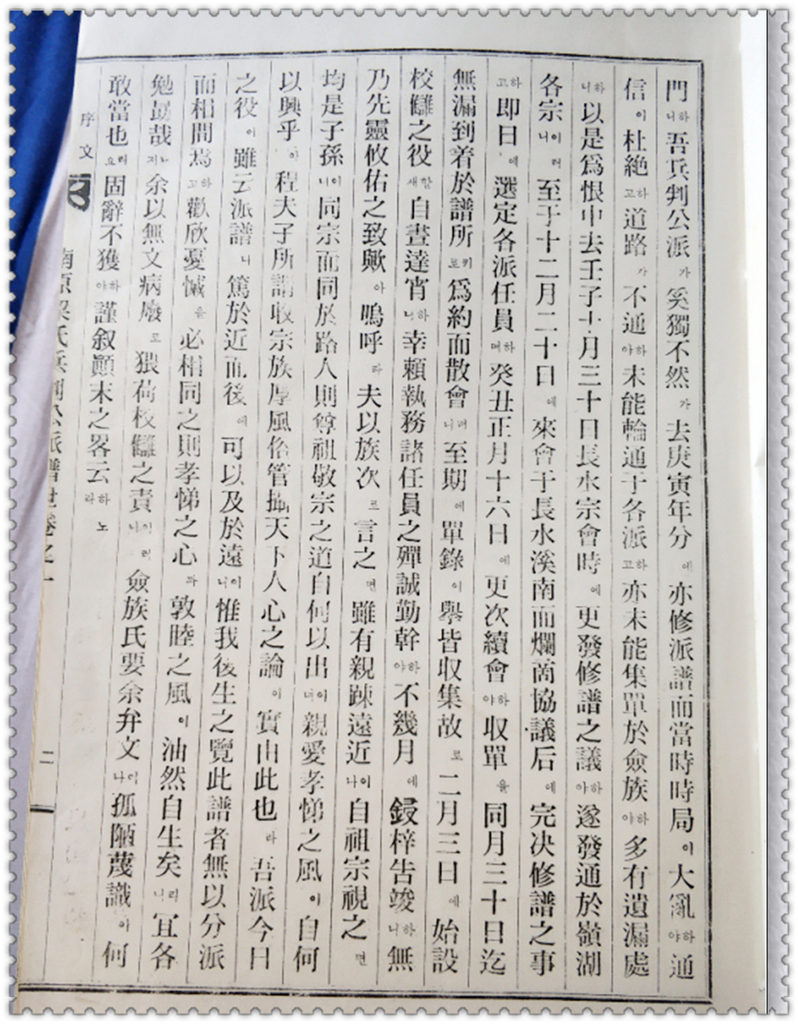 門니하吾兵判公派가奚獨不然가去庚寅年分에亦修派譜而當時時局이大亂야하通
信이杜絶고하道路가不通야하未能輪通于各派고하亦未能集單於僉族야하多有遺漏處
니하以是爲恨中去壬子十月三十日長水宗會時에更發修譜之議야하遂發通於嶺湖
各宗니이러至于十二月二十日에來會于長水溪南而爛商協議后에完決修譜之事
고하即日에選定各派任員며하癸丑正月十六日에更次續會야하收單을同月三十日迄
無漏到着於譜所로키爲約而散會니러至期에單錄이擧皆收集故로二月三日에始設
校讎之役새할自晝達宵니하幸賴執務諸任員之殫誠勤幹야하不幾月에鋟梓告竣니하無
乃先靈攸佑之致歟아嗚呼라夫以族次로言之면雖有親踈遠近나이自祖宗視之면
均是子孫니이同宗而同於路人則尊祖敬宗之道自何以出녀이親愛孝悌之風이自何
以興乎아程夫子所謂收宗族厚風俗管攝天下人心之論이實由此也라吾派今日
之役이雖云派譜나篤於近而後에可以及於遠니이惟我後生之覽此譜者無以分派
而相間焉고하歡欣憂慽을必相同之則孝悌之心과敦睦之風이油然自生矣니리宜各
勉勗哉져ᄂᆞ余以無文病廢로猥荷校讎之責니이러僉族氏要余弁文나이孤陋蔑識이何
敢當也요리固辭不獲야하謹叙顚末之畧云라하노
序文 南原梁氏兵判公派譜世卷之一 二